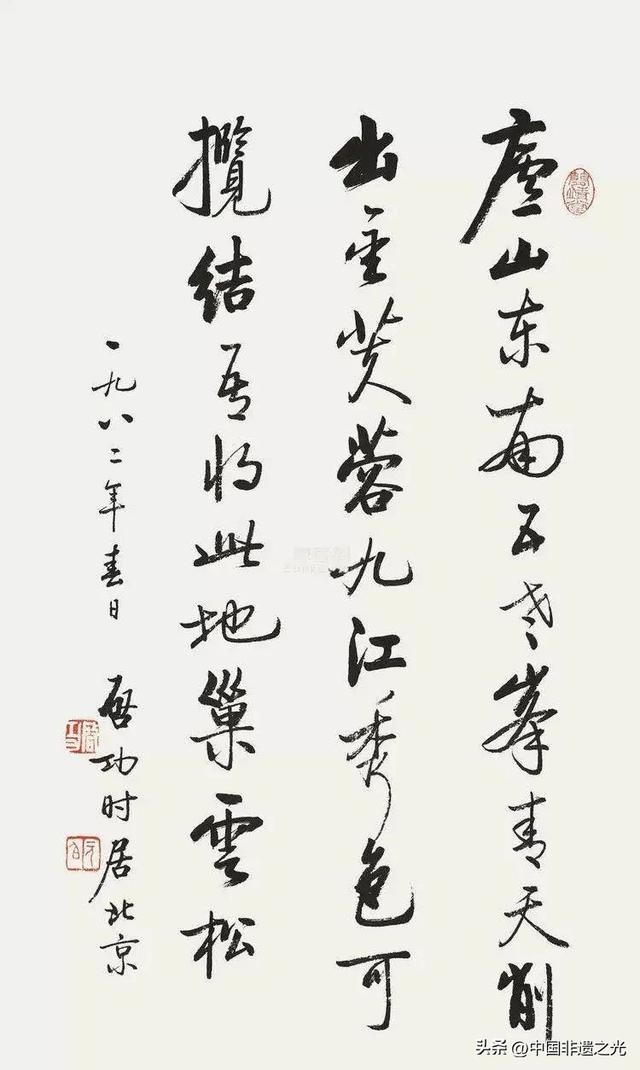 廬山东南五老峯青天削
出金芙蓉九江秀色可
攬结吾将此地巢雲松
一九八二年春日
啓功时居北京
头条 @中国非遗之光